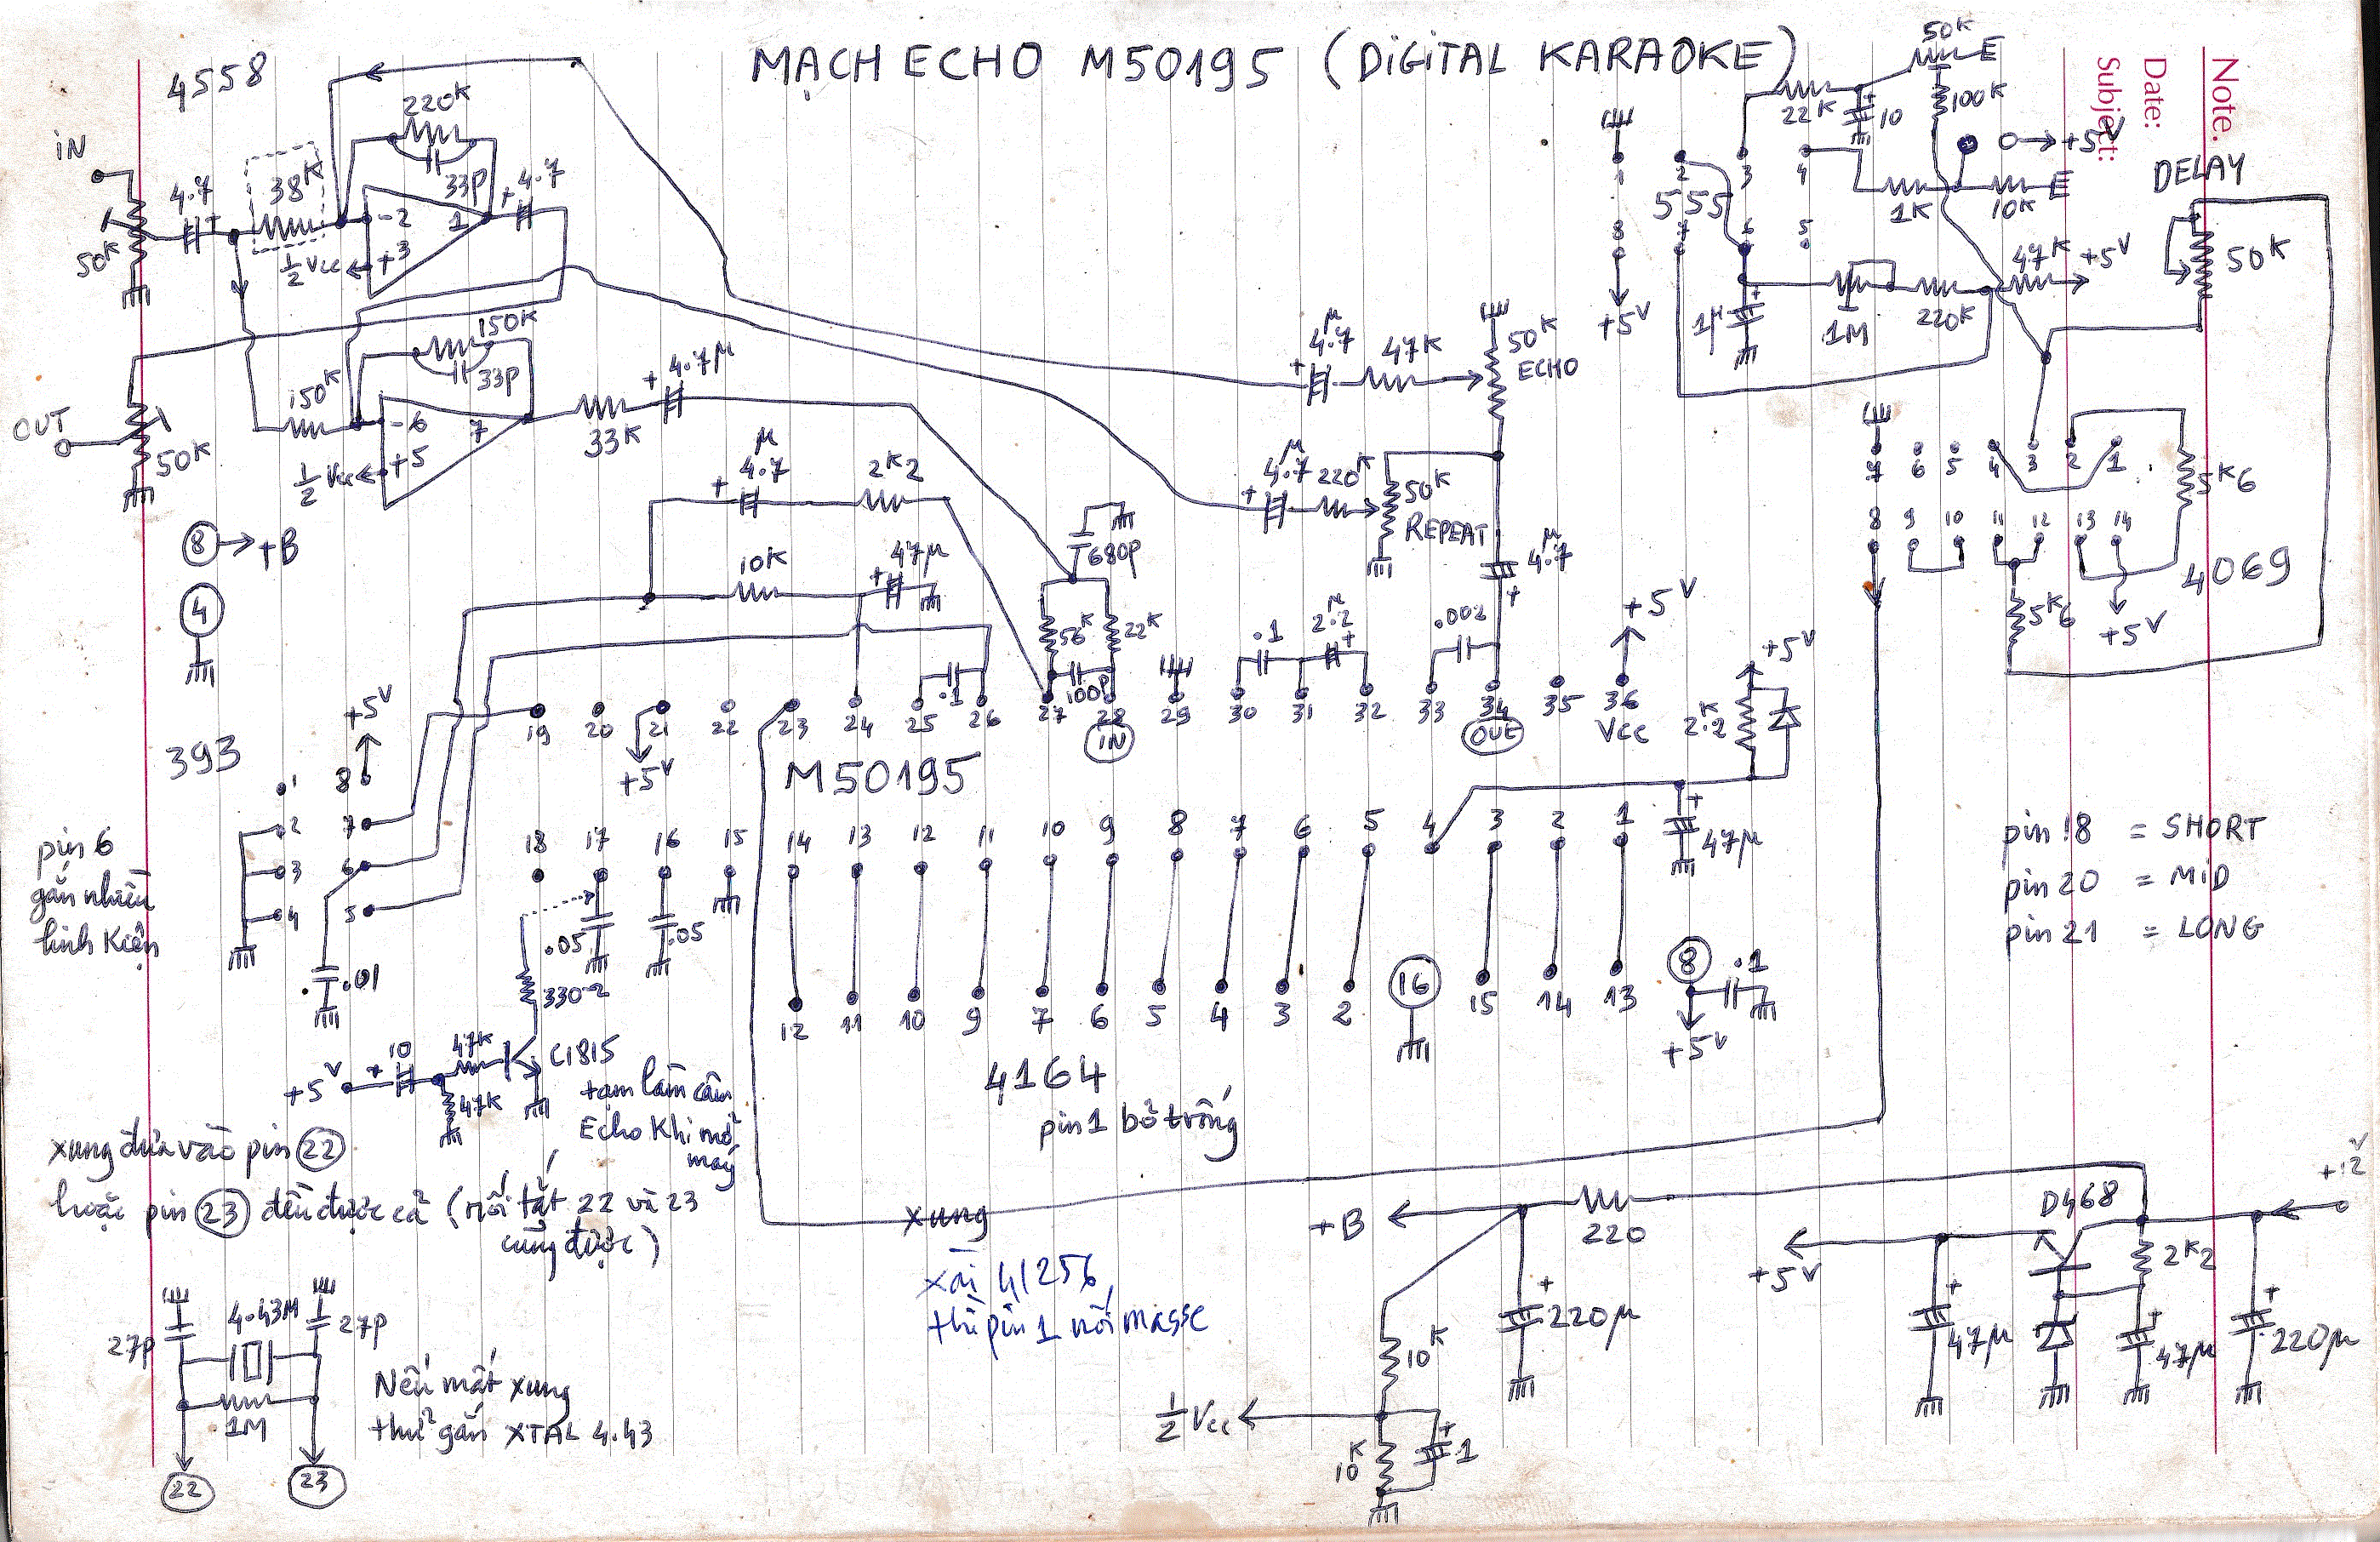 MẠCH ECHO M50195 (DiGiTAL KARAOKE)
Note.
Date:
Subject:
4558
iN
50K
4.7
38K
220K
33P
4.7
-2
+3
1
½Vcc
150K
150K
33P
-6
+5
7
½Vcc
33K
4.7µ
OUT
50K
8 → +B
4
4.7µ
2K2
10K
47µ
680P
56K
22K
100P
.1
4.7µ
47K
50K
ECHO
4.7µ
220K
50K
REPEAT
4.7µ
.1
2.2µ
.002
+5V
1 2 3 4
555
8 7 6 5
+5V
22K
10
50K
E
100K
+5V
1K
10K
E
1µ
1M
220K
47K
+5V
DELAY
50K
7 6 5 4 3 2 1
8 9 10 11 12 13 14
5K6
5K6
4069
+5V
19 20 21 22 23 24 25 26 27 28 29 30 31 32 33 34 35 36
IN
OUT
Vcc
+5V
M50195
18 17 16 15 14 13 12 11 10 9 8 7 6 5 4 3 2 1
2.2K
+5V
47µ
393
+5V
1 8
2 7
3 6
4 5
.01
pin 6
gắn nhiều
linh kiện
.05
.05
330Ω
+5V
10
47K
47K
C1815
tạm làm câm
Echo khi mở
máy
12 11 10 9 7 6 5 4 3 2 16 15 14 13 8
.1
+5V
4164
pin 1 bỏ trống
pin 18 = SHORT
pin 20 = MiD
pin 21 = LONG
xung đưa vào pin 22
hoặc pin 23 đều được cả (nối tắt 22 và 23
cũng được)
xung
xài 41256
thì pin 1 nối masse
27P
4.43M
27P
1M
22
23
Nếu mất xung
thử gắn XTAL 4.43
+B
220
220µ
10K
½Vcc
10K
1
+5V
D468
+12V
2K2
47µ
47µ
220µ